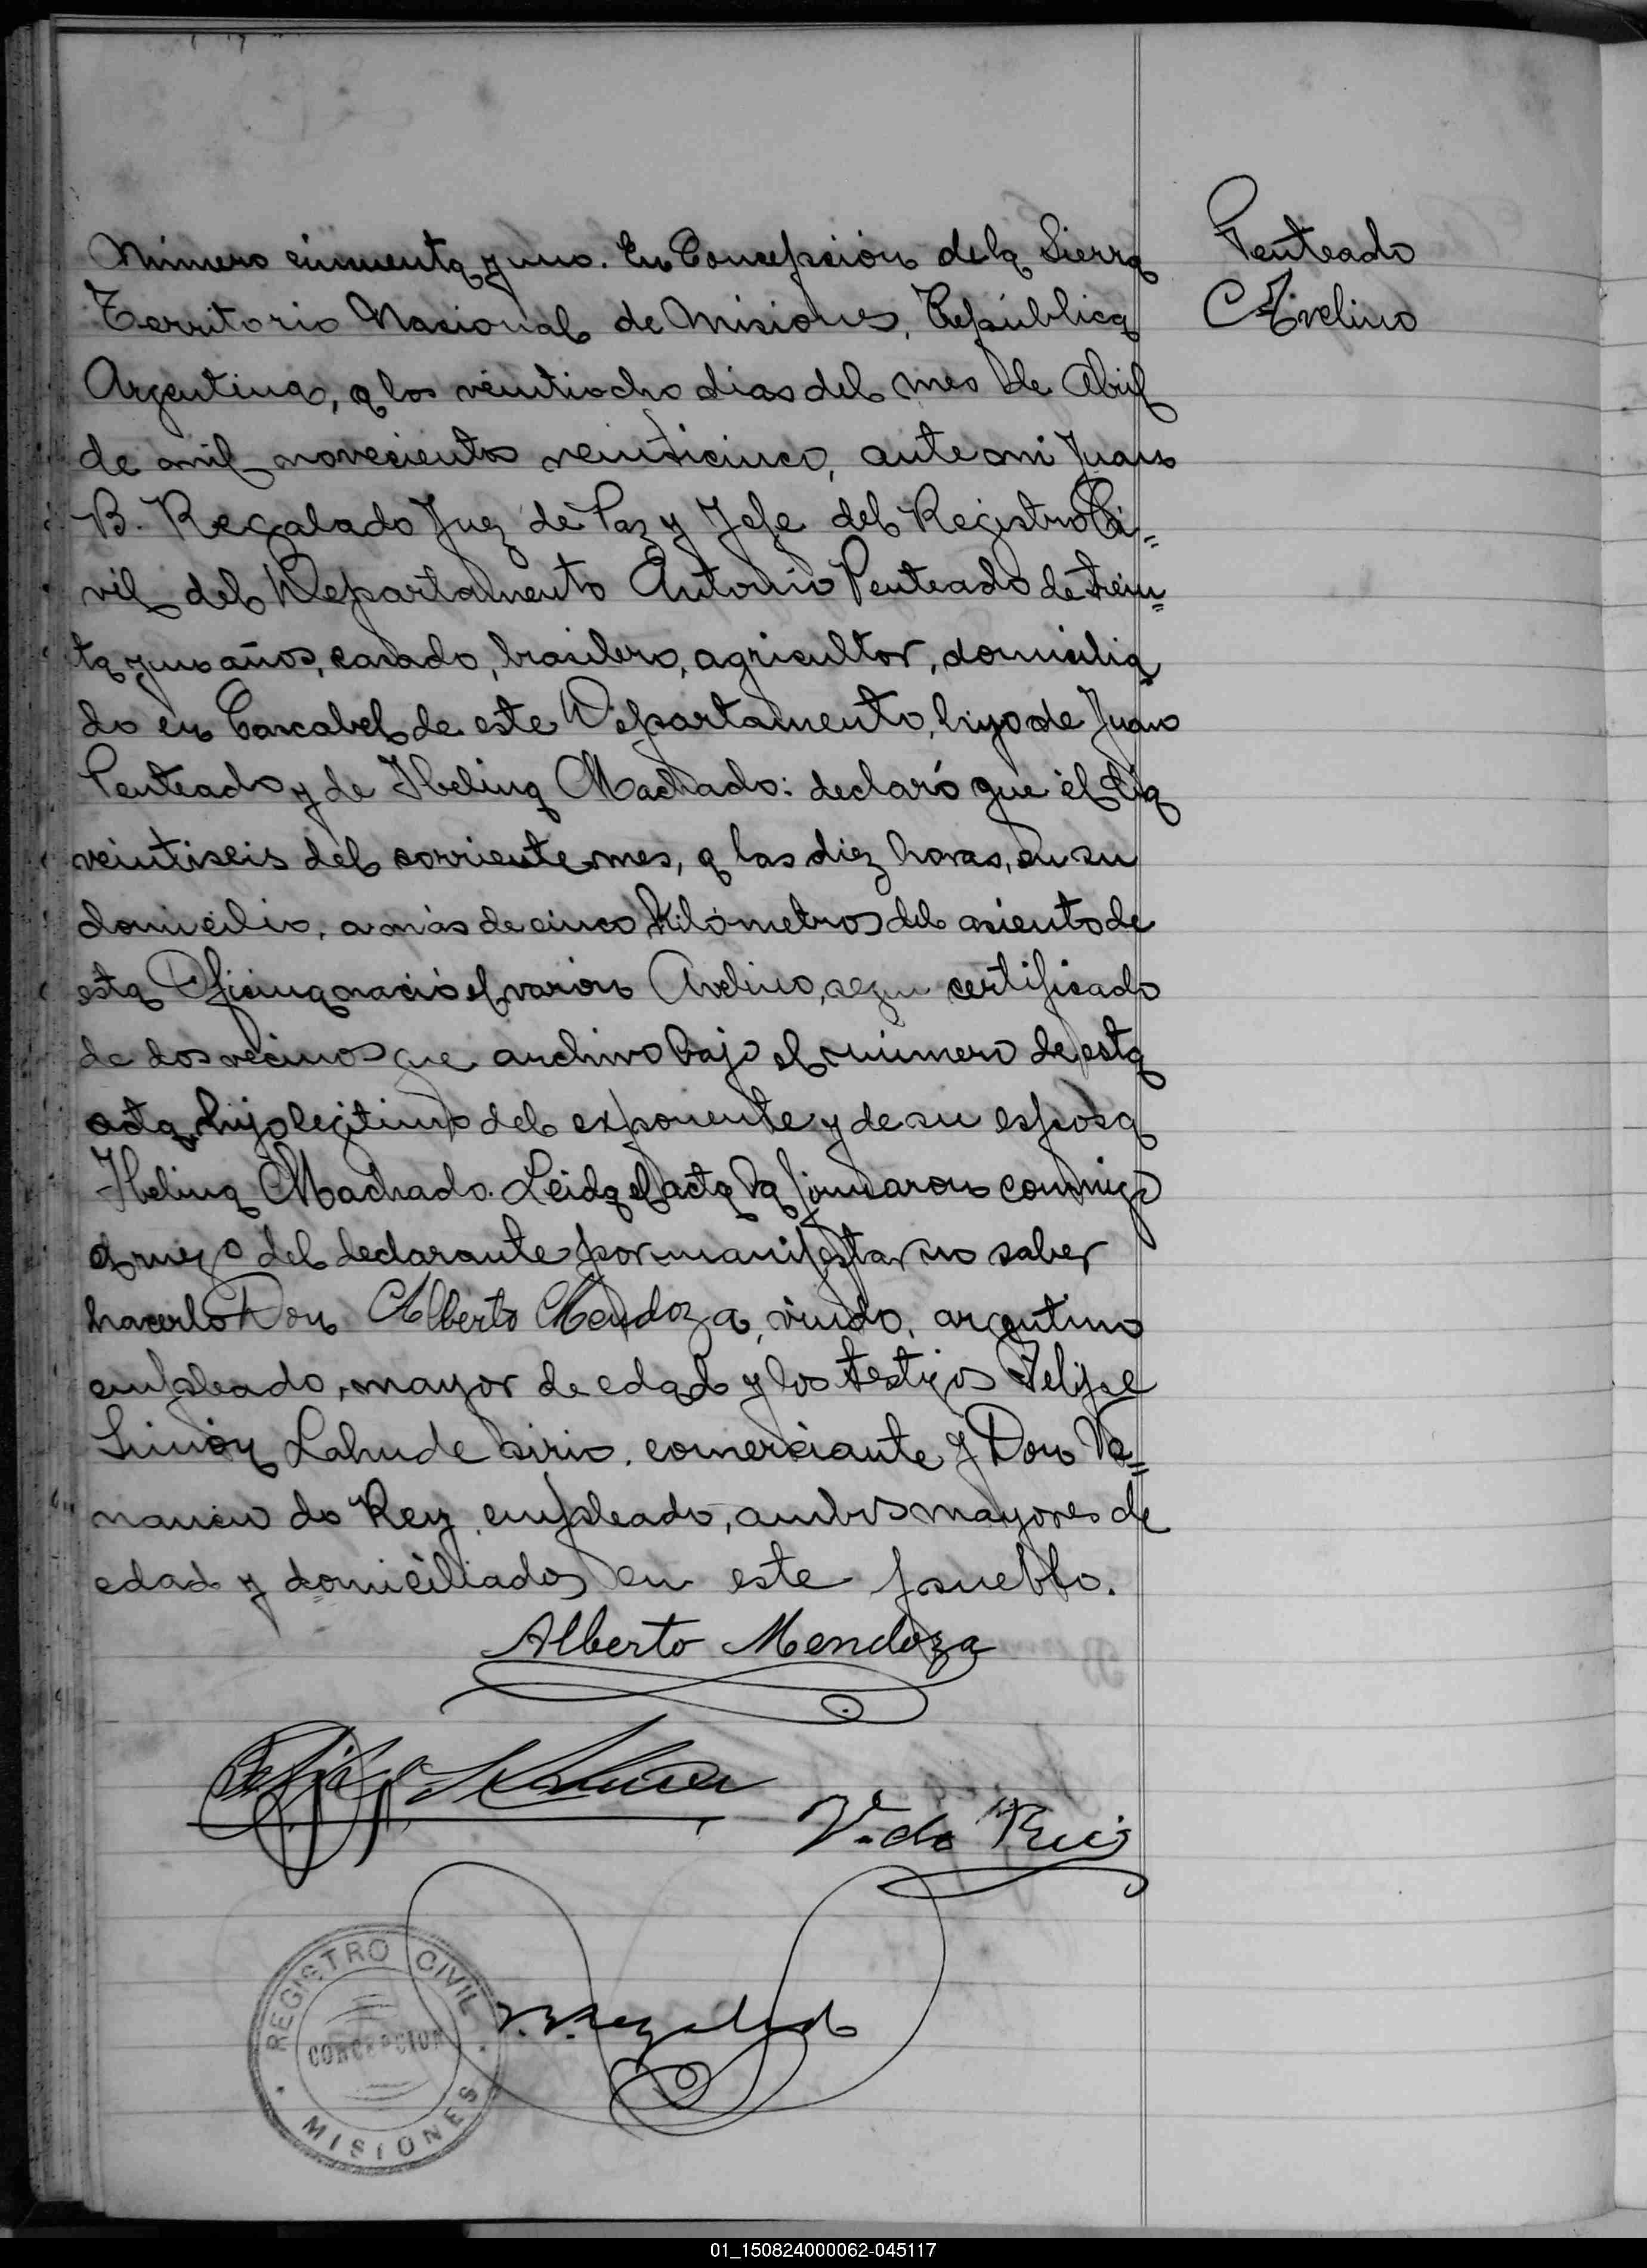 Penteado
Avelino
Número cincuenta y uno. En Concepción de la Sierra
Territorio Nacional de Misiones, República
Argentina, a los veintiocho dias del mes de Abril
de mil novecientos veinticinco, ante mi Juan
B. Regalado Juez de Paz y Jefe del Registro Ci=
vil del Departamento Antonio Penteado de trein=
ta y un años, casado, brasilero, agricultor, domicilia
do en Cascabel de este Departamento, hijo de Juan
Penteado y de Ibelina Machado: declaró que el dia
veintiseis del corriente mes, a las diez horas, en su
domicilio, a más de cinco Kilómetros del asiento de
esta Oficina nació el varón Avelino, segun certificado
de dos vecinos que archivo bajo el número de esta
acta, hijo legitimo del exponente y de su esposa
Ibelina Machado. Leida el acta la firmaron conmigo
a ruego del declarante por manifestar no saber
hacerlo Don Alberto Mendoza, viudo, argentino
empleado, mayor de edad y los testigos Felipe
Simón Lahude sirio, comerciante y Don Ve=
nancio do Rey, empleado, ambos mayores de
edad y domiciliados en este pueblo.
Alberto Mendoza
V. do Reis
REGISTRO CIVIL
CONCEPCION
MISIONES
01_150824000062-045117